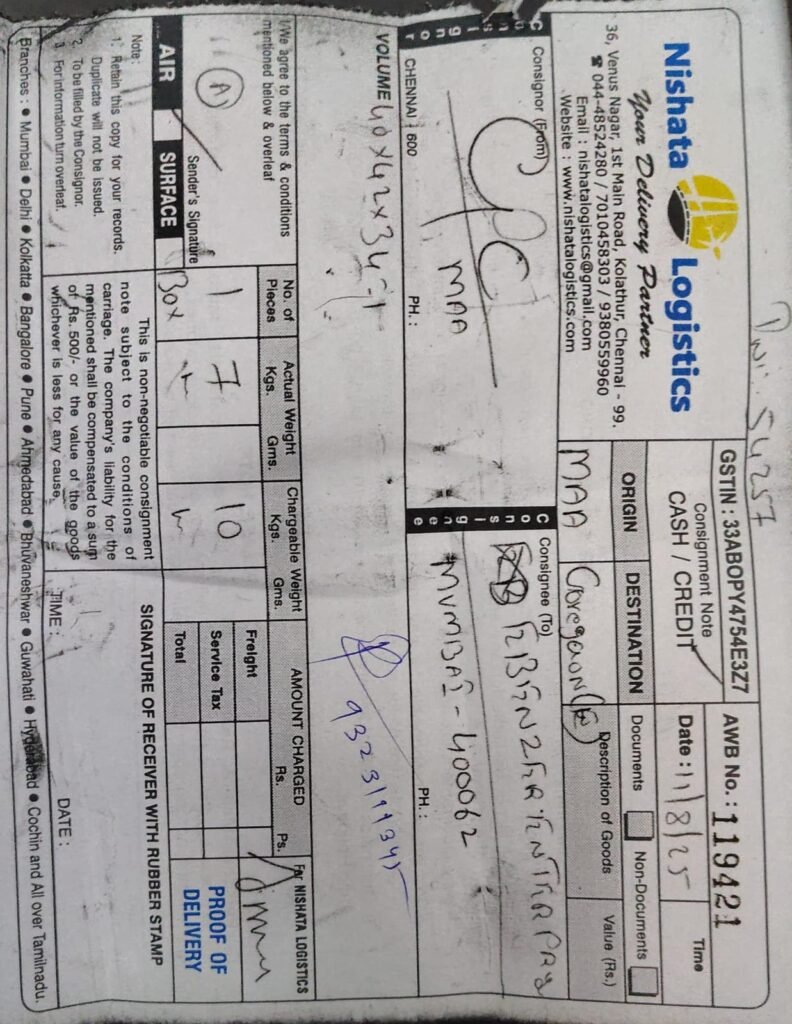 Nishata Logistics
Your Delivery Partner
36, Venus Nagar, 1st Main Road, Kolathur, Chennai - 99.
☎ 044-48524280 / 7010458303 / 9380559960
Email : nishatalogistics@gmail.com
Website : www.nishatalogistics.com
54257
GSTIN : 33ABOPY4754E3Z7
Consignment Note
CASH / CREDIT
AWB No. : 119421
Date : 11/8/25
Time
ORIGIN
MAA
DESTINATION
Goregaon (E)
Documents
Non-Documents
Description of Goods
Value (Rs.)
Consignor
Consignor (From)
CPC
MAA
CHENNAI 600
PH. :
Consignee
Consignee (To)
MUMBAI - 400062
PH. :
VOLUME 40 x 42 x 34 - 1
9323119345
I/We agree to the terms & conditions
mentioned below & overleaf
A
Sender's Signature
AIR
SURFACE
No. of Pieces
1
Box
Actual Weight
Kgs. Gms.
7
Chargeable Weight
Kgs. Gms.
10
AMOUNT CHARGED
Rs. Ps.
Freight
Service Tax
Total
For NISHATA LOGISTICS
PROOF OF
DELIVERY
Note :
1. Retain this copy for your records.
Duplicate will not be issued.
2. To be filled by the Consignor.
3. For information turn overleaf.
This is non-negotiable consignment
note subject to the conditions of
carriage. The company's liability for the
mentioned shall be compensated to a sum
of Rs. 500/- or the value of the goods
whichever is less for any cause.
SIGNATURE OF RECEIVER WITH RUBBER STAMP
TIME :
DATE :
Branches : ● Mumbai ● Delhi ● Kolkatta ● Bangalore ● Pune ● Ahmedabad ● Bhuvaneshwar ● Guwahati ● Hyderabad ● Cochin and All over Tamilnadu.